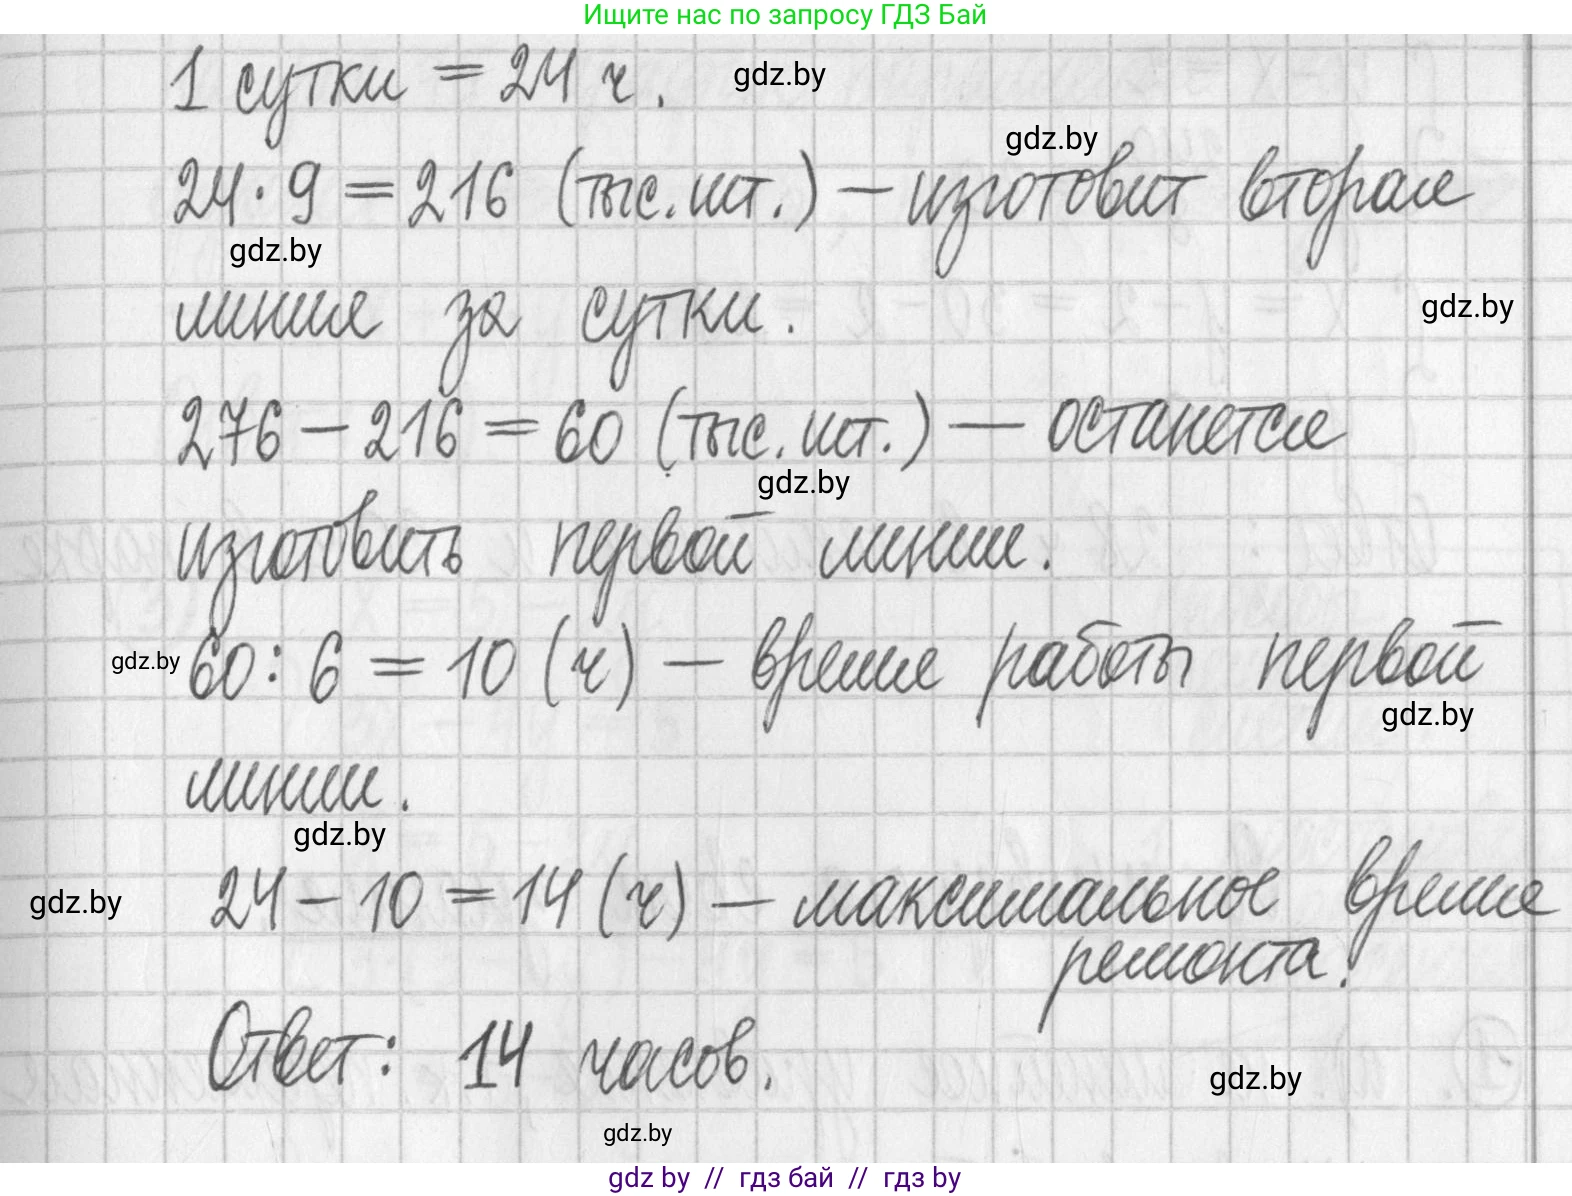 Ищите нас по запросу ГДЗ Бай
1 сутки = 24 ч. gdz.by
gdz.by
24 · 9 = 216 (тыс. шт.) — изготовит вторая
gdz.by
линия за сутки. gdz.by
276 – 216 = 60 (тыс. шт.) — останется
gdz.by
изготовить первой линии.
gdz.by 60 : 6 = 10 (ч) — время работы первой
gdz.by
линии.
gdz.by
gdz.by 24 – 10 = 14 (ч) — максимальное время
ремонта.
Ответ: 14 часов.
gdz.by
gdz.by
gdz by // гдз бай // гдз by